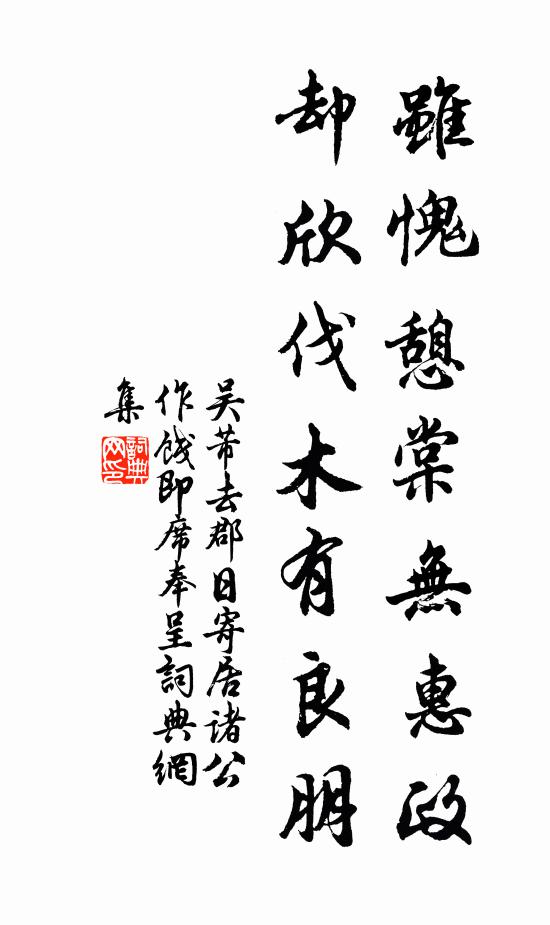 雖愧憩棠無惠政
却欣伐木有良朋
吴芾去郡日寄居诸公
作餞即席奉呈詞典網
集
詞典网印